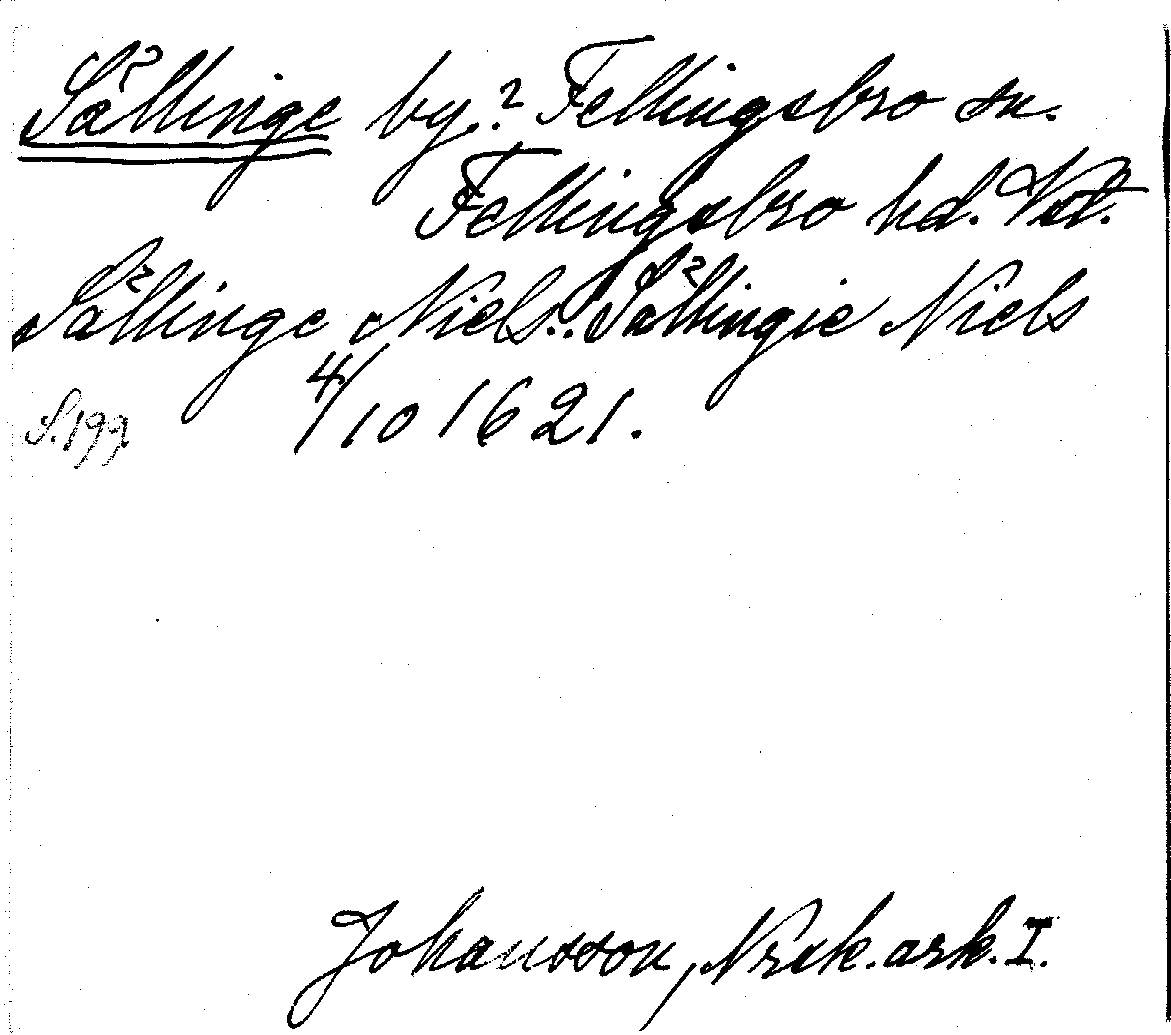 Sållinge by? Fellingsbro sn.
Fellingsbro hd. Vstm.
Sållinge Niels: Sållingie Niels
4/10 1621.
S. 199.
Johansson, Nrsk. ark. I.